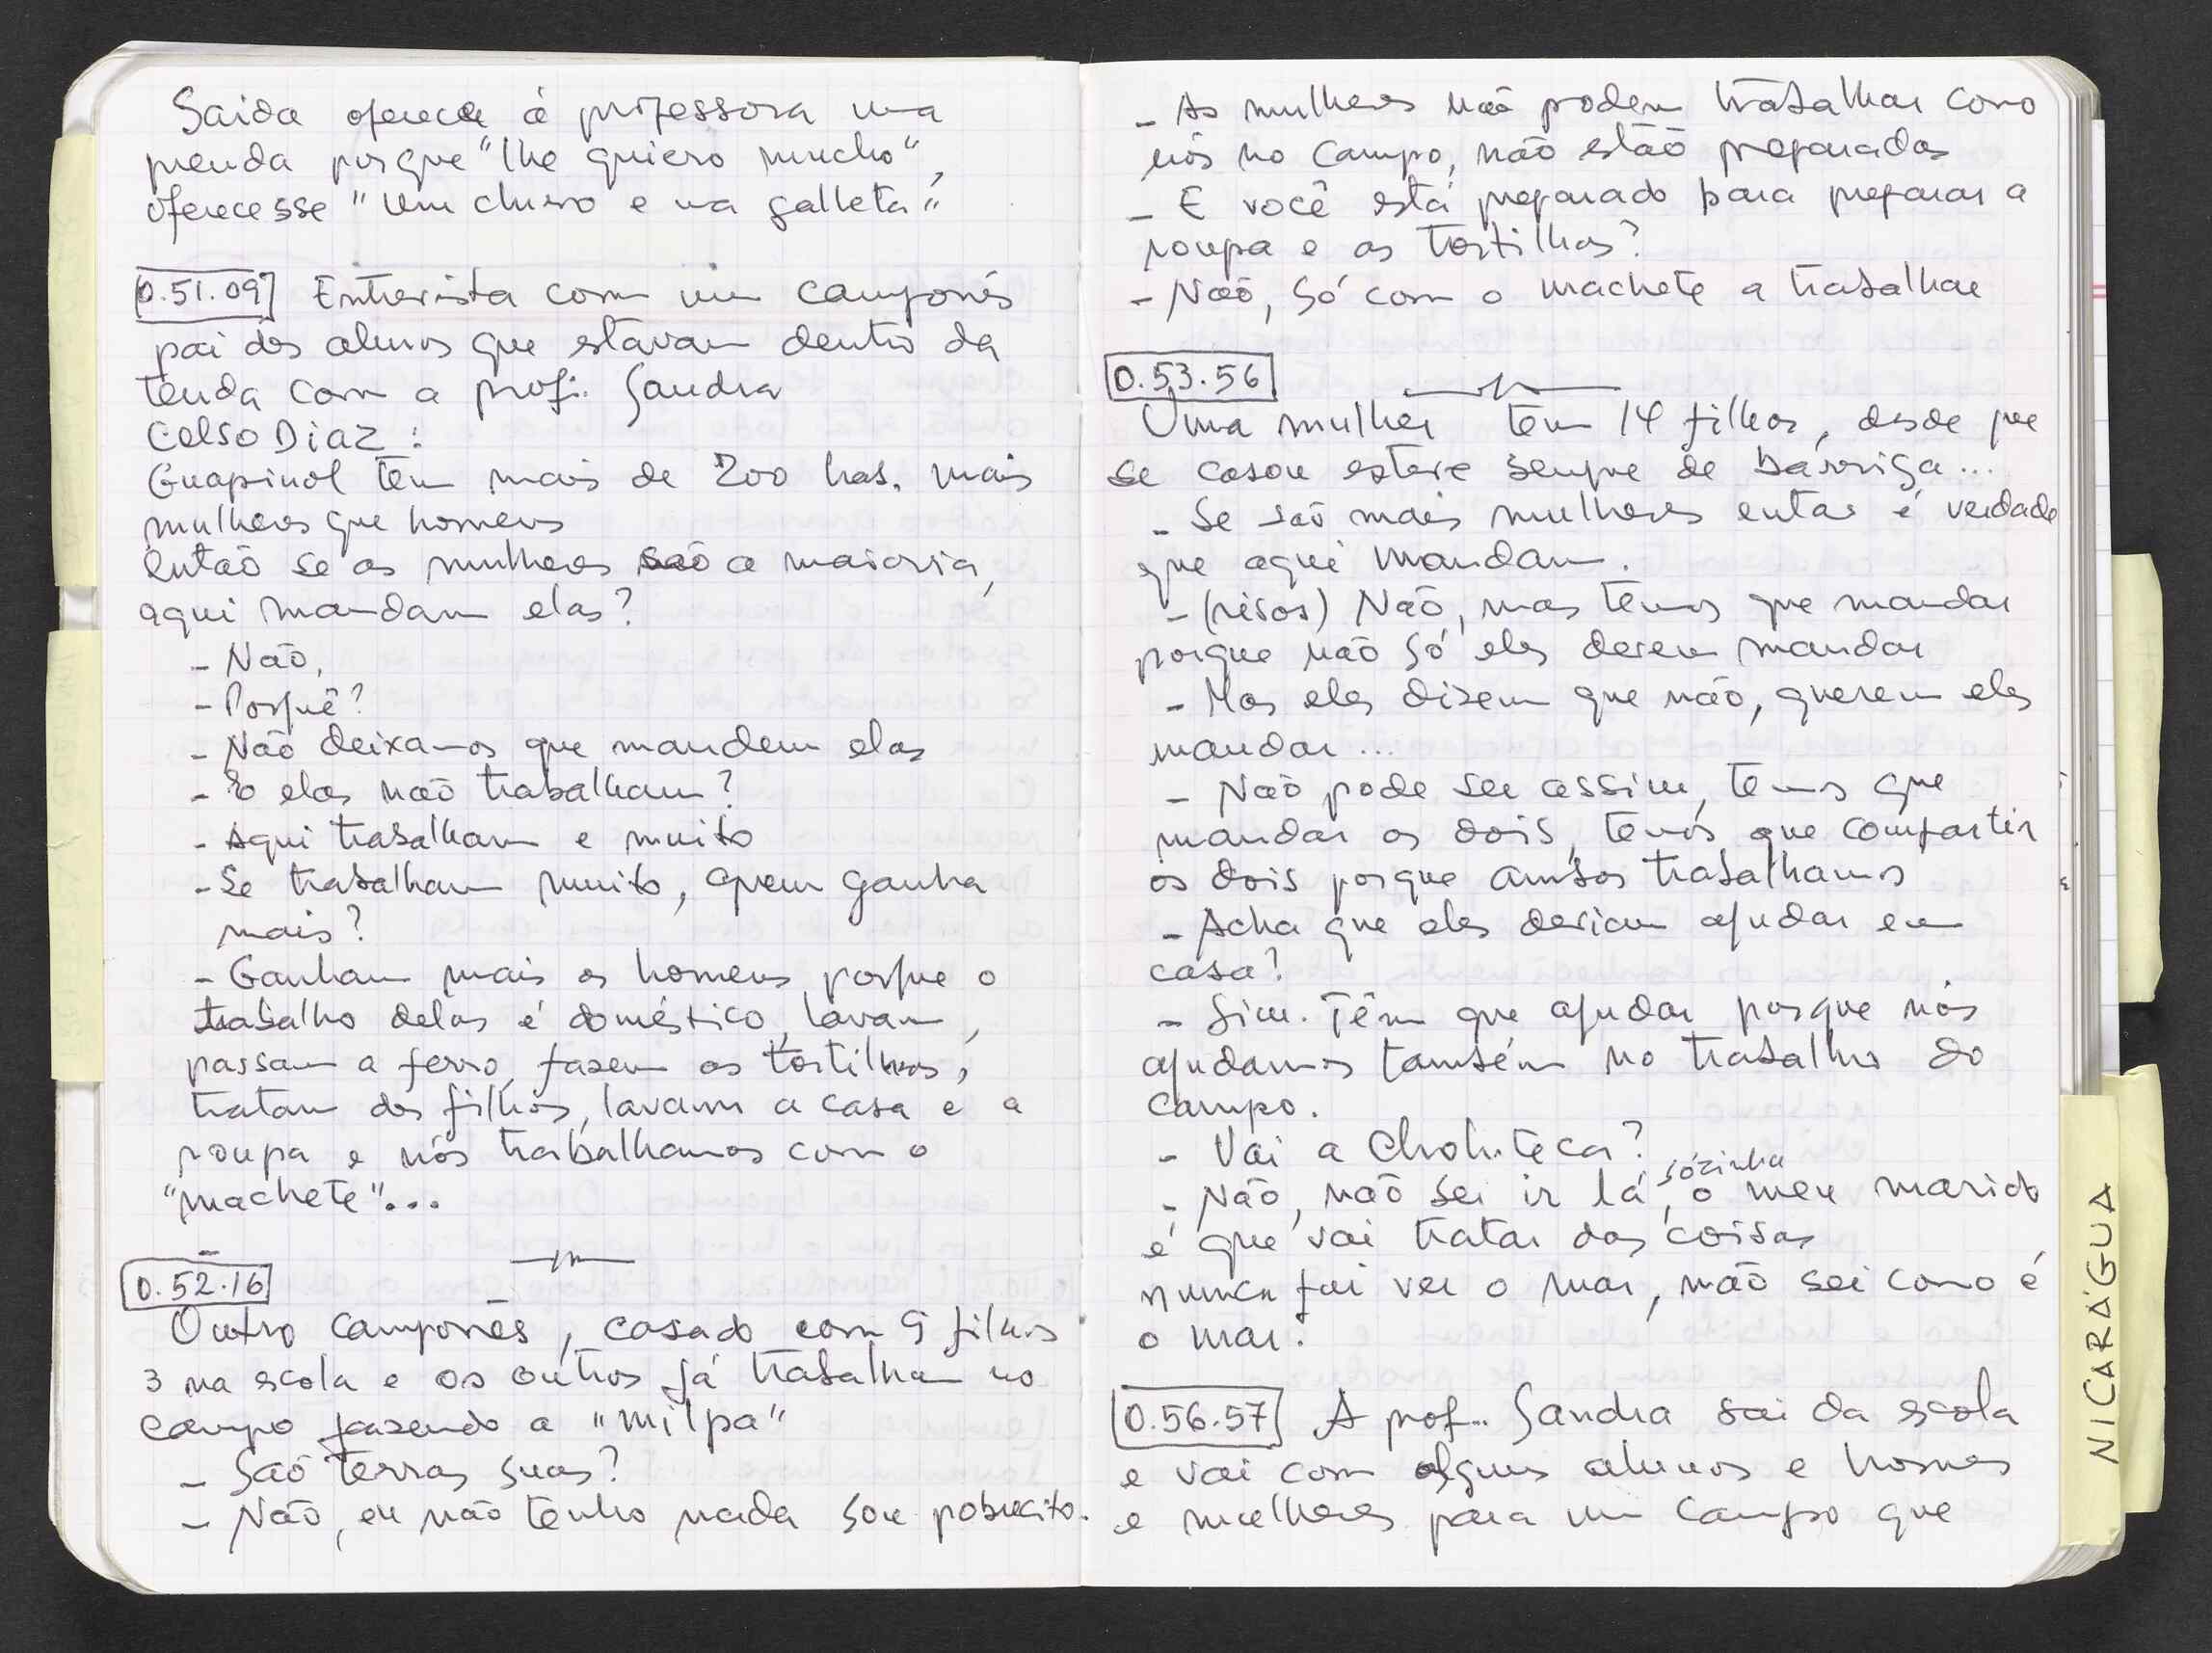 Saida oferece á professora uma
prenda porque "lhe quiero mucho",
oferecesse "um churro e ua galleta"
0.51.09 Entrevista com um camponês
pai dos alunos que estavam dentro da
tenda com a prof. Sandra
Celso Diaz:
Guapinol tem mais de 200 has. mais
mulheres que homens
então se as mulheres são a maioria,
aqui mandam elas?
- Não,
- Porquê?
- Não deixamos que mandem elas
- E elas não trabalham?
- Aqui trabalham e muito
- Se trabalham muito, quem ganha
mais?
- Ganham mais os homens porque o
trabalho delas é doméstico, lavam,
passam a ferro, fazem as tortilhas,
tratam dos filhos, lavam a casa e a
roupa e nós trabalhamos com o
"machete"...
0.52.16
Outro camponês, casado com 9 filhos
3 na escola e os outros já trabalham no
campo fazendo a "milpa"
- São terras suas?
- Não, eu não tenho nada sou pobrecito.
- As mulheres não podem trabalhar como
nós no campo, não estão preparadas
- E você está preparado para preparar a
roupa e as tortilhas?
- Não, só com o machete a trabalhar
0.53.56
Uma mulher tem 14 filhos, desde que
se casou esteve sempre de barriga...
- Se são mais mulheres entao é verdade
que aqui mandam.
- (risos) Não, mas temos que mandar
porque não só eles devem mandar
- Mas eles dizem que não, querem eles
mandar...
- Não pode ser assim, temos que
mandar os dois, temos que compartir
os dois porque ambos trabalhamos
- Acha que eles deviam ajudar em
casa?
- Sim. Têm que ajudar porque nós
ajudamos também no trabalho do
campo.
- Vai a Choluteca?
- Não, não sei ir lá sózinha, o meu marido
é que vai tratar das coisas
nunca fui ver o mar, não sei como é
o mar.
0.56.57 A prof. Sandra sai da escola
e vai com alguns alunos e homens
e mulheres para um campo que
NICARÁGUA